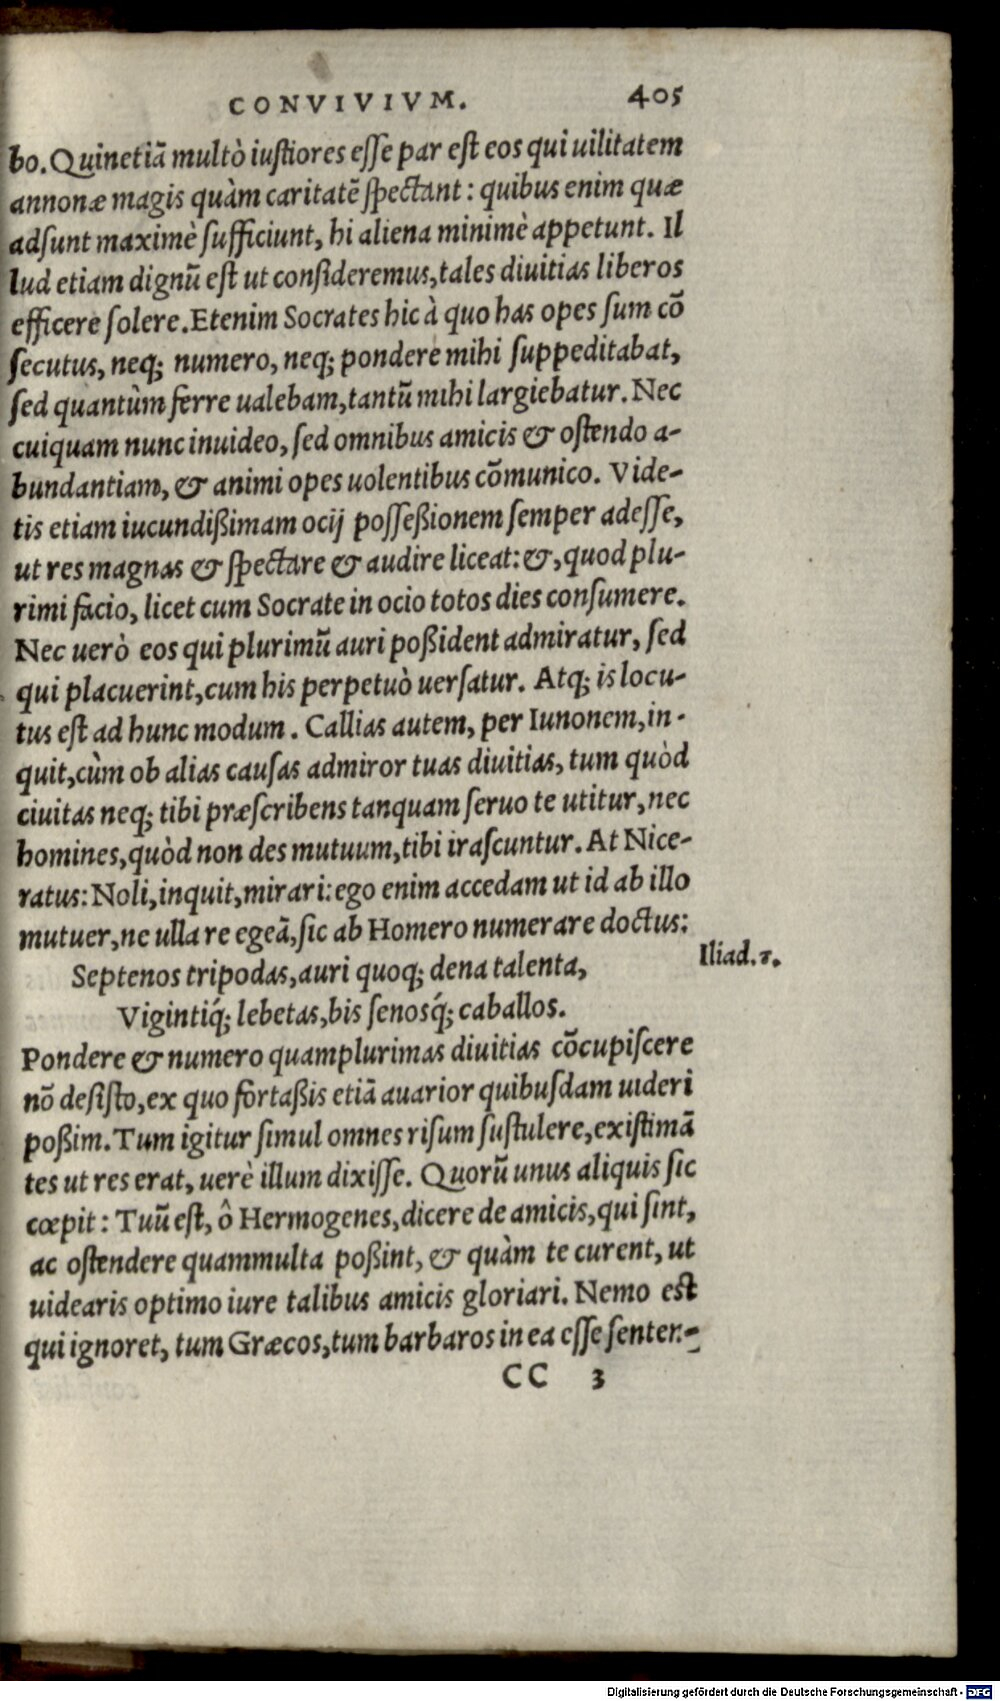 CONVIVIVM. 405
bo. Quinetiã multò iustiores esse par est eos qui uilitatem
annonæ magis quàm caritatẽ spectant: quibus enim quæ
adsunt maximè sufficiunt, hi aliena minimè appetunt. Il
lud etiam dignũ est ut consideremus, tales diuitias liberos
efficere solere. Etenim Socrates hic à quo has opes sum cõ
secutus, neq; numero, neq; pondere mihi suppeditabat,
sed quantùm ferre ualebam, tantũ mihi largiebatur. Nec
cuiquam nunc inuideo, sed omnibus amicis & ostendo a-
bundantiam, & animi opes uolentibus cõmunico. Vide-
tis etiam iucundißimam ocij possessionem semper adesse,
ut res magnas & spectare & audire liceat: &, quod plu-
rimi facio, licet cum Socrate in ocio totos dies consumere.
Nec uerò eos qui plurimũ auri poßident admiratur, sed
qui placuerint, cum his perpetuò uersatur. Atq; is locu-
tus est ad hunc modum. Callias autem, per Iunonem, in-
quit, cùm ob alias causas admiror tuas diuitias, tum quòd
ciuitas neq; tibi præscribens tanquam seruo te utitur, nec
homines, quòd non des mutuum, tibi irascuntur. At Nice-
ratus: Noli, inquit, mirari: ego enim accedam ut id ab illo
mutuer, ne ulla re egeã, sic ab Homero numerare doctus:
Septenos tripodas, auri quoq; dena talenta,
Iliad.
Vigintiq́; lebetas, bis senosq́; caballos.
Pondere & numero quamplurimas diuitias cõcupiscere
nõ desisto, ex quo fortaßis etiã auarior quibusdam uideri
poßim. Tum igitur simul omnes risum sustulere, existimã
tes ut res erat, uerè illum dixisse. Quorũ unus aliquis sic
cœpit: Tuũ est, ô Hermogenes, dicere de amicis, qui sint,
ac ostendere quammulta poßint, & quàm te curent, ut
uidearis optimo iure talibus amicis gloriari. Nemo est
qui ignoret, tum Græcos, tum barbaros in ea esse senten-
CC 3
Digitalisierung gefördert durch die Deutsche Forschungsgemeinschaft - DFG